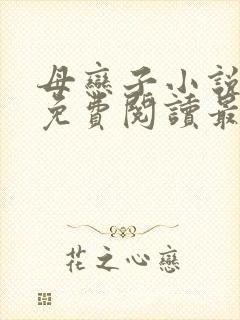 母戀子小說
免費閱讀最
花之心戀